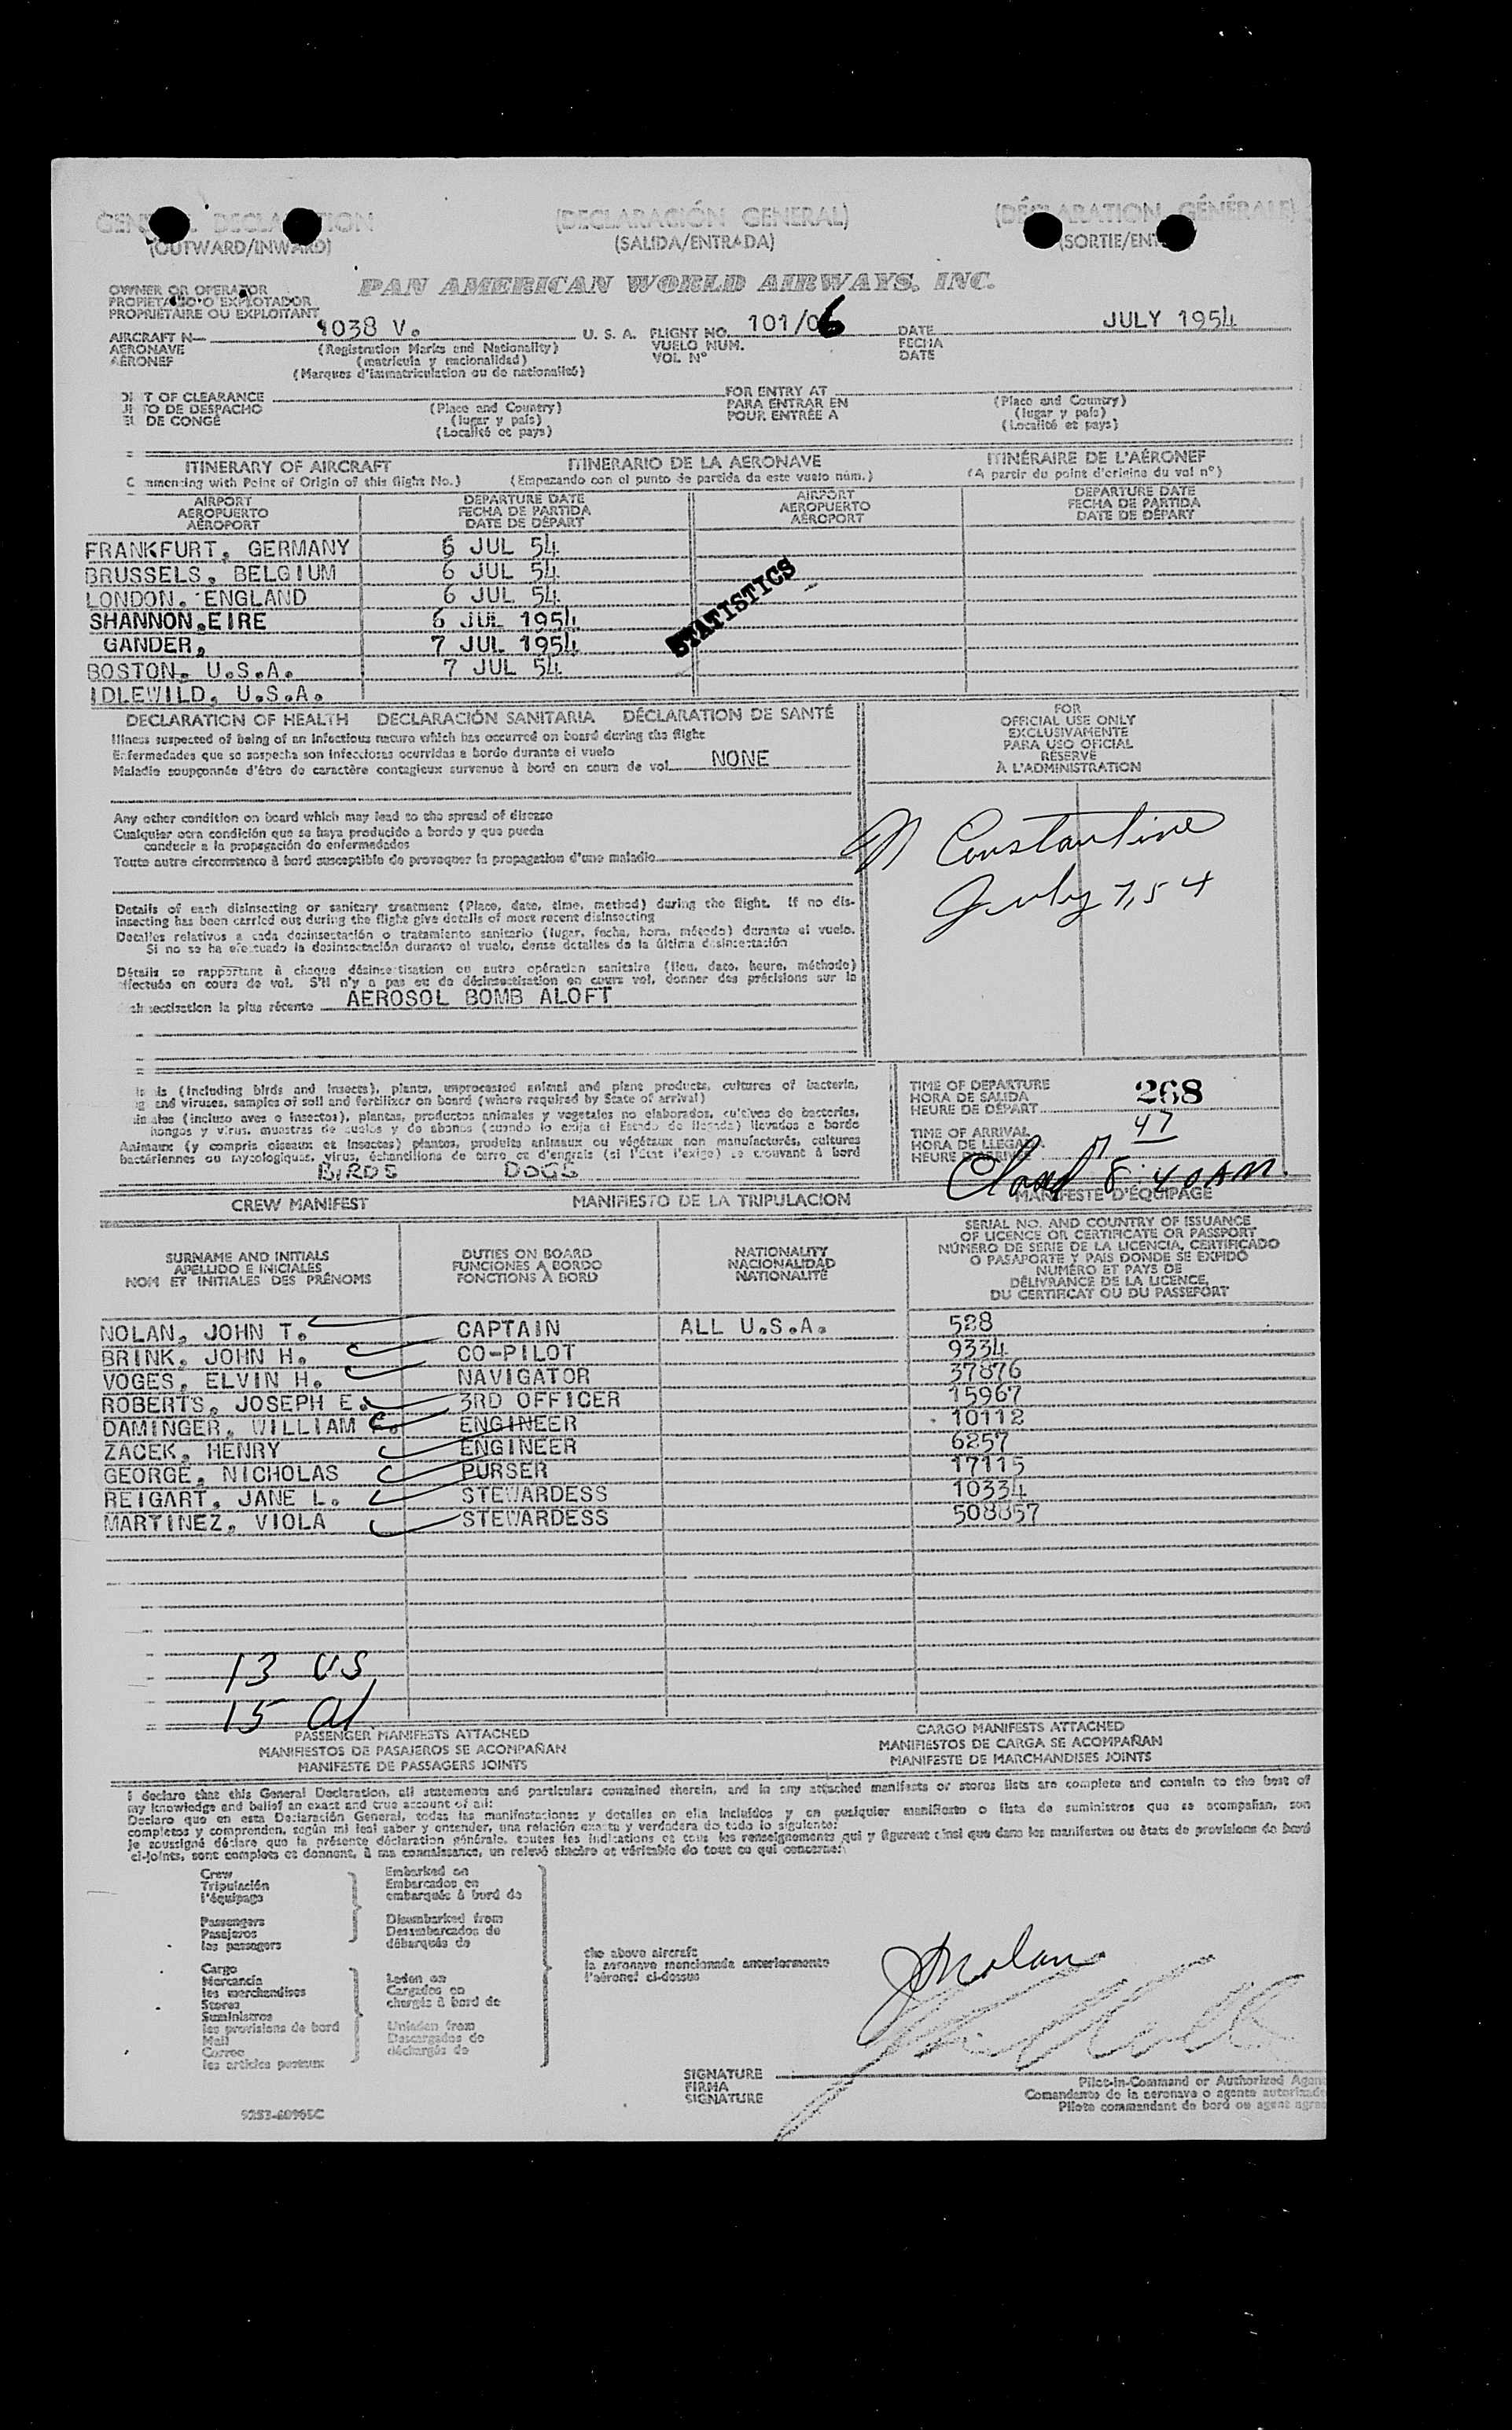 GENERAL DECLARATION (DECLARACIÓN GENERAL) (DÉCLARATION GÉNÉRALE)
(OUTWARD/INWARD) (SALIDA/ENTRADA) (SORTIE/ENT
OWNER OR OPERATOR PAN AMERICAN WORLD AIRWAYS, INC.
PROPIETARIO O EXPLOTADOR
PROPRIÉTAIRE OU EXPLOITANT
AIRCRAFT N 1038 V. U. S. A. FLIGHT NO. 101/06 DATE JULY 1954
AERONAVE (Registration Marks and Nationality) VUELO NUM. FECHA
AÉRONEF (matrícula y nacionalidad) VOL Nº DATE
(Marques d'immatriculation ou de nationalité)
T OF CLEARANCE FOR ENTRY AT
TO DE DESPACHO (Place and Country) PARA ENTRAR EN (Place and Country)
DE CONGÉ (lugar y país) POUR ENTRÉE A (lugar y país)
(Localité et pays) (Localité et pays)
ITINERARY OF AIRCRAFT ITINERARIO DE LA AERONAVE ITINÉRAIRE DE L'AÉRONEF
C mmencing with Point of Origin of this flight No.) (Empezando con el punto de partida de este vuelo núm.) (A partir du point d'origine du vol nº)
AIRPORT DEPARTURE DATE AIRPORT DEPARTURE DATE
AEROPUERTO FECHA DE PARTIDA AEROPUERTO FECHA DE PARTIDA
AÉROPORT DATE DE DÉPART AÉROPORT DATE DE DÉPART
FRANKFURT, GERMANY 6 JUL 54
BRUSSELS, BELGIUM 6 JUL 54
LONDON, ENGLAND 6 JUL 54
SHANNON,EIRE 6 JUL 1954
GANDER, 7 JUL 1954
BOSTON, U.S.A. 7 JUL 54
IDLEWILD, U.S.A.
STATISTICS
DECLARATION OF HEALTH DECLARACIÓN SANITARIA DÉCLARATION DE SANTÉ
Illness suspected of being of an infectious nature which has occurred on board during the flight
Enfermedades que se sospecha son infecciosas ocurridas a bordo durante el vuelo
Maladie soupçonnée d'être de caractère contagieux survenue à bord en cours de vol NONE
Any other condition on board which may lead to the spread of disease
Cualquier otra condición que se haya producido a bordo y que pueda
conducir a la propagación de enfermedades
Toute autre circonstance à bord susceptible de provoquer la propagation d'une maladie
Details of each disinsecting or sanitary treatment (Place, date, time, method) during the flight. If no dis-
insecting has been carried out during the flight give details of most recent disinsecting
Detalles relativos a cada desinsectación o tratamiento sanitario (lugar, fecha, hora, método) durante el vuelo.
Si no se ha efectuado la desinsectación durante el vuelo, dense detalles de la última desinsectación
Détails se rapportant à chaque désinsectisation ou autre opération sanitaire (lieu, date, heure, méthode)
effectuée en cours de vol. S'il n'y a pas eu de désinsectisation en cours vol, donner des précisions sur la
sinsectisation la plus récente AEROSOL BOMB ALOFT
FOR
OFFICIAL USE ONLY
EXCLUSIVAMENTE
PARA USO OFICIAL
RESERVÉ
À L'ADMINISTRATION
N Constantine
July 7, 54
ls (including birds and insects), plants, unprocessed animal and plant products, cultures of bacteria,
and viruses, samples of soil and fertilizer on board (where required by State of arrival)
ales (incluso aves e insectos), plantas, productos animales y vegetales no elaborados, cultivos de bacterias,
hongos y virus, muestras de suelos y de abonos (cuando lo exija el Estado de llegada) llevados a bordo
Animaux (y compris oiseaux et insectes) plantes, produits animaux ou végétaux non manufacturés, cultures
bactériennes ou mycologiques, virus, échantillons de terre ou d'engrais (si l'État l'exige) se trouvant à bord
BIRDS DOGS
TIME OF DEPARTURE
HORA DE SALIDA 268
HEURE DE DÉPART
TIME OF ARRIVAL 47
HORA DE LLEGADA
HEURE D'ARRIVÉE
8:40 AM.
CREW MANIFEST MANIFIESTO DE LA TRIPULACION MANIFESTE D'ÉQUIPAGE
SURNAME AND INITIALS DUTIES ON BOARD NATIONALITY SERIAL NO. AND COUNTRY OF ISSUANCE
APELLIDO E INICIALES FUNCIONES A BORDO NACIONALIDAD OF LICENCE OR CERTIFICATE OR PASSPORT
NOM ET INITIALES DES PRÉNOMS FONCTIONS À BORD NATIONALITÉ NÚMERO DE SERIE DE LA LICENCIA, CERTIFICADO
O PASAPORTE Y PAÍS DONDE SE EXPIDÓ
NUMÉRO ET PAYS DE
DÉLIVRANCE DE LA LICENCE,
DU CERTIFICAT OU DU PASSEPORT
NOLAN, JOHN T. CAPTAIN ALL U.S.A. 528
BRINK, JOHN H. CO-PILOT 9334
VOGES, ELVIN H. NAVIGATOR 37876
ROBERTS, JOSEPH E. 3RD OFFICER 15967
DAMINGER, WILLIAM ENGINEER 10112
ZACEK, HENRY ENGINEER 6257
GEORGE, NICHOLAS PURSER 17115
REIGART, JANE L. STEWARDESS 10334
MARTINEZ, VIOLA STEWARDESS 508857
13 US
15 al
PASSENGER MANIFESTS ATTACHED CARGO MANIFESTS ATTACHED
MANIFIESTOS DE PASAJEROS SE ACOMPAÑAN MANIFIESTOS DE CARGA SE ACOMPAÑAN
MANIFESTE DE PASSAGERS JOINTS MANIFESTE DE MARCHANDISES JOINTS
I declare that this General Declaration, all statements and particulars contained therein, and in any attached manifests or stores lists are complete and contain to the best of
my knowledge and belief an exact and true account of all:
Declaro que en esta Declaración General, todas las manifestaciones y detalles en ella incluídos y en cualquier manifiesto o lista de suministros que se acompañan, son
completos y comprenden, según mi leal saber y entender, una relación exacta y verdadera de todo lo siguiente:
Je soussigné déclare que la présente déclaration générale, toutes les indications et tous les renseignements qui y figurent ainsi que dans les manifestes ou états de provisions de bord
ci-joints, sont complets et donnent, à ma connaissance, un relevé sincère et véritable de tout ce qui concerne:
Crew Embarked on
Tripulación Embarcados en
l'équipage embarqués à bord de
Passengers Disembarked from
Pasajeros Desembarcados de
les passagers débarqués de
the above aircraft
la aeronave mencionada anteriormente
l'aéronef ci-dessus
Cargo
Mercancía Laden on
les merchandises Cargados en
Stores chargés à bord de
Suministros
les provisions de bord Unladen from
Mail Descargados de
Correo déchargés de
les articles postaux
JNolan
SIGNATURE Pilot-in-Command or Authorized Agen
FIRMA Comandante de la aeronave o agente autorizad
SIGNATURE Pilote commandant de bord ou agent agré
9253-60965C